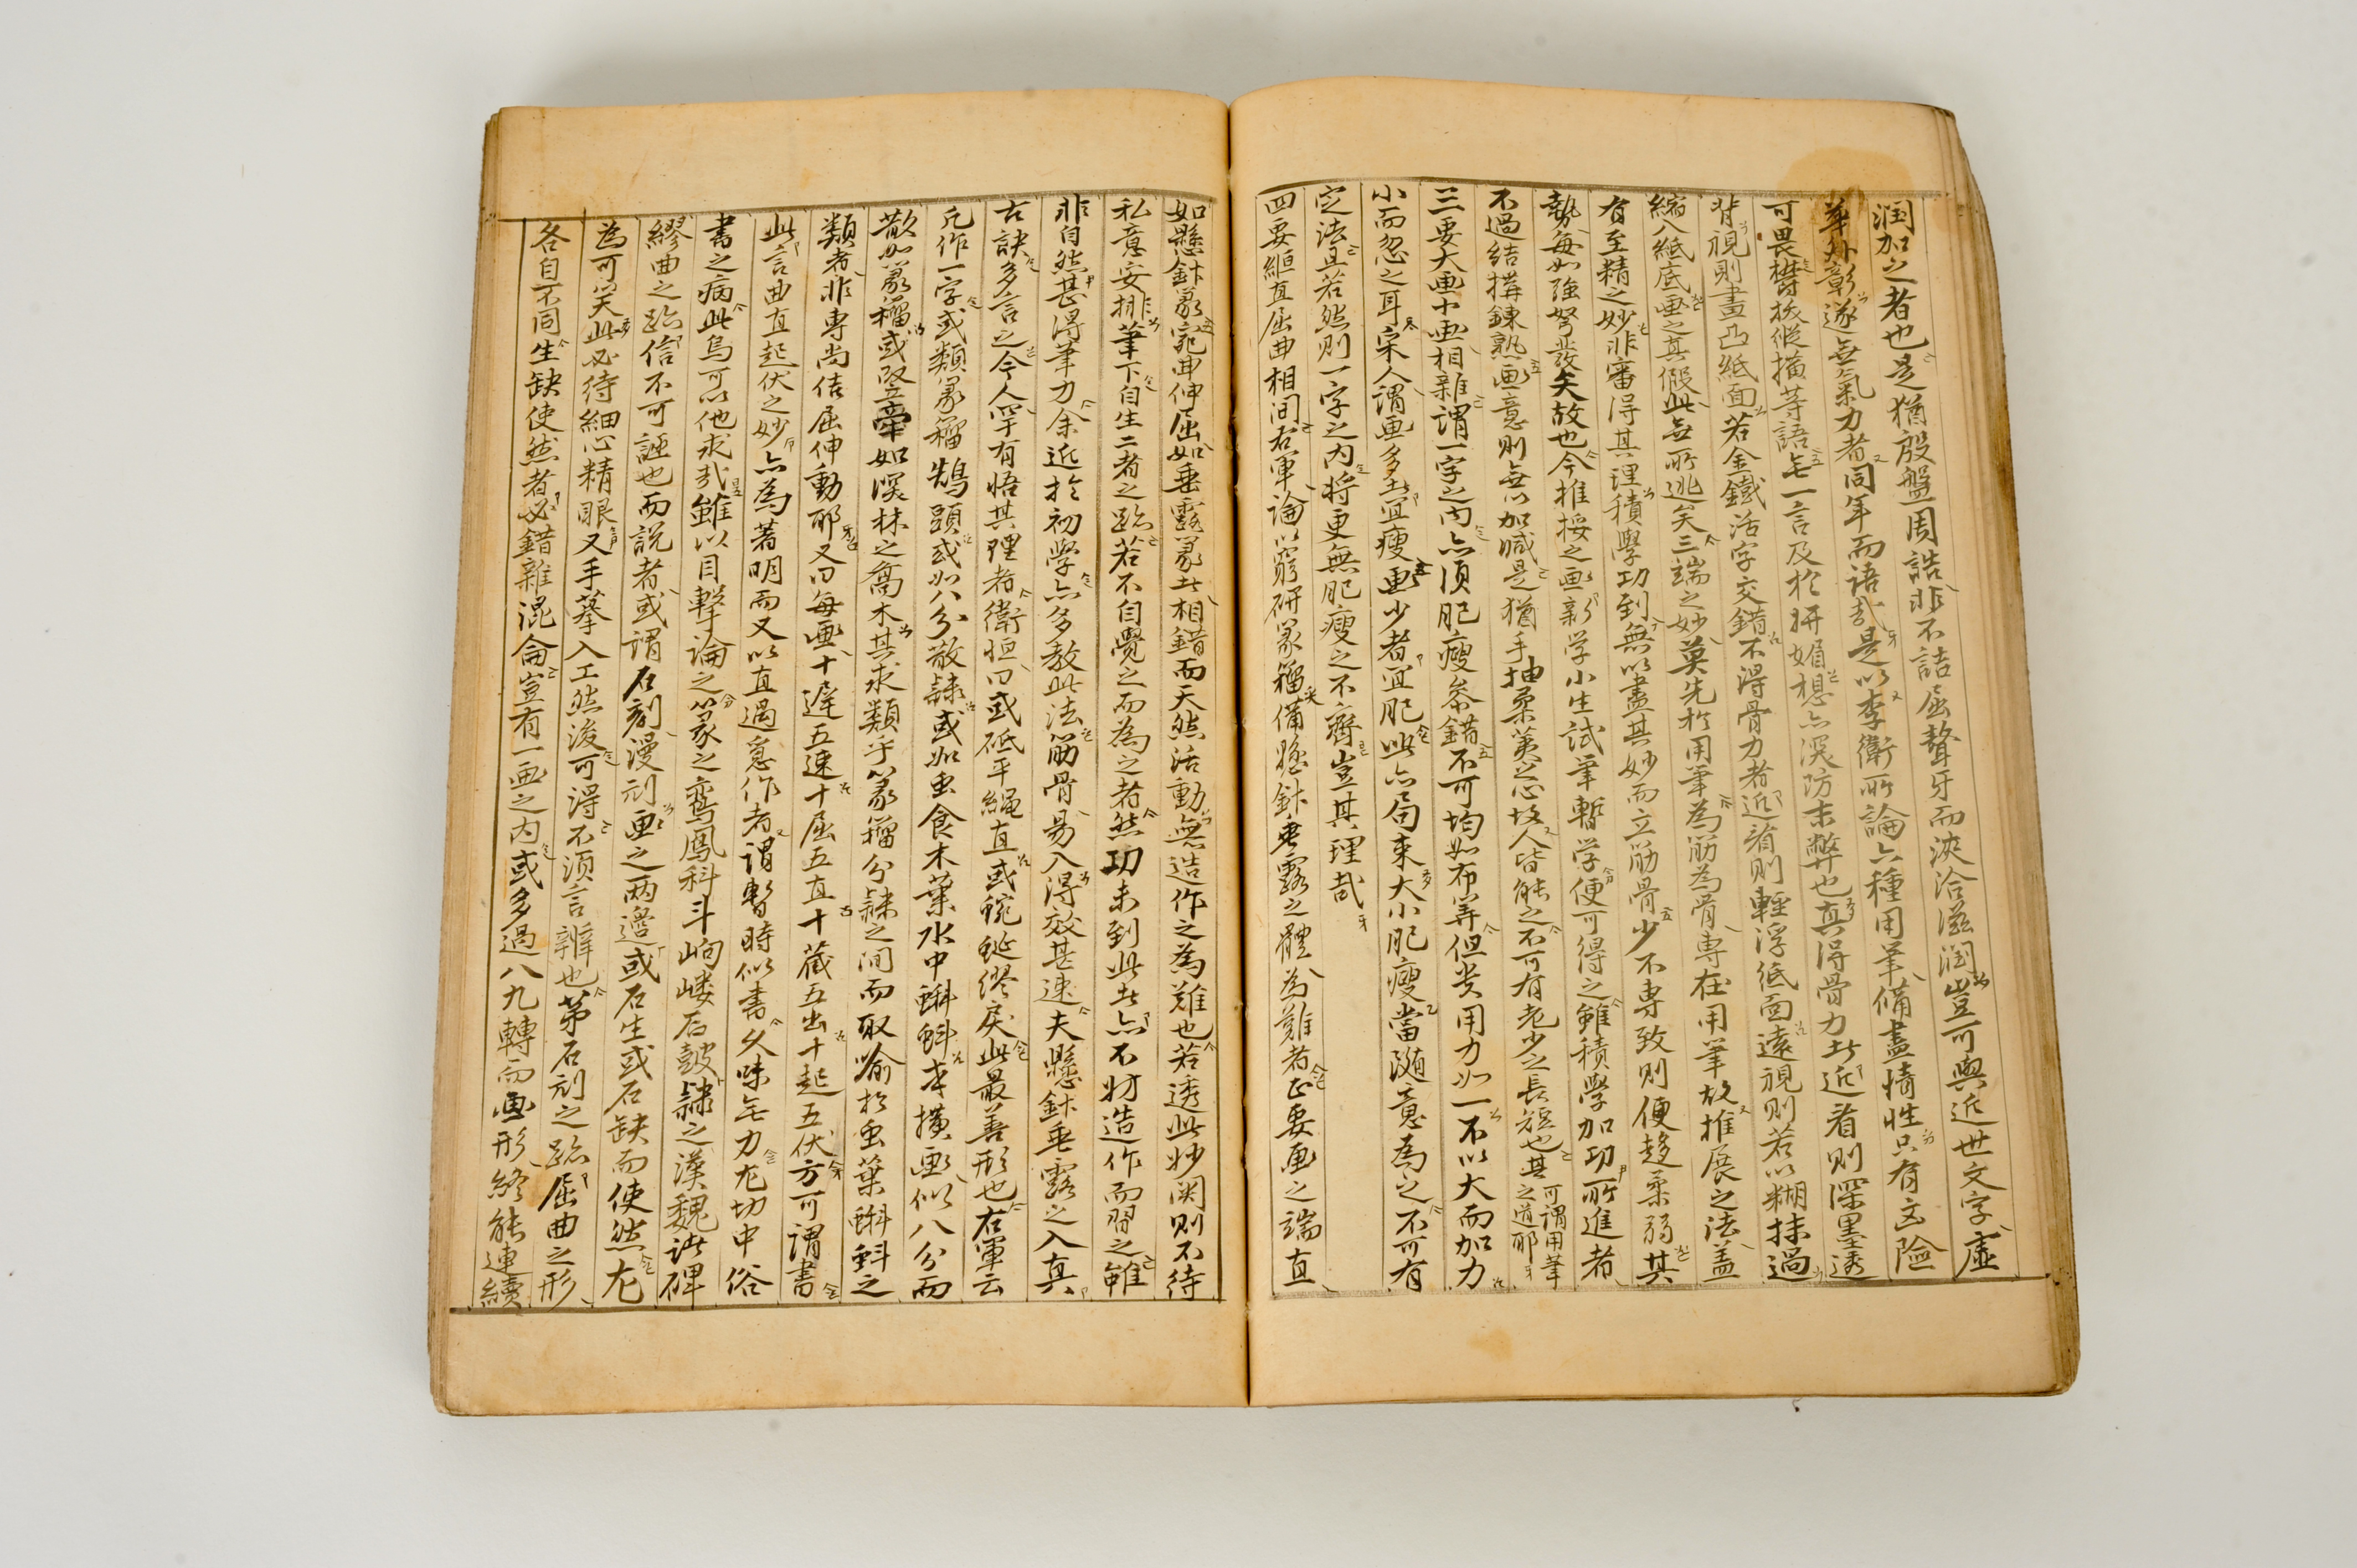 潤加之者也是猶殷盤周誥非不詰屈聱牙而浹洽滋潤豈可與近世文字虛
華外彰遂無氣力者同年而語哉是以李衛所論六種用筆備盡情性只有立險
可畏欝拔縱橫等語無一言及於姸媚想亦深防末弊也真得骨力者近看則深墨透
背視則畫凸紙面若金鐵活字交錯不得骨力者近看則輕浮紙面遠視則若以糊抹過
縮入紙底画之其假此無所逃矣三端之妙莫先於用筆為筋為骨專在用筆故推展之法盖
有至精之妙非審得其理積學功到無以盡其妙而立筋骨少不專致則便趍柔弱其
勢每如強弩發矢故也今推挼之画新学小生試筆暫学便可得之雖積學加功所進者
不過結搆鍊熟画意則無以加减是猶手抽柔荑忿拔人皆能之不可有老少之長短也其可謂用筆之道耶
三要大画中画相雜謂一字之内亦須肥瘦參錯不可均如布筭但贵用力如一不以大而加力
小而忽之耳宋人謂画多者宜瘦画少者宜肥此亦局束大小肥瘦當随意為之不可有
定法且若然則一字之内将更無肥瘦之不齊豈其理哉
四要縆直屈曲相间右軍論以窮研篆籀備懸針垂露之體為難者正要画之端直
如懸針篆宛曲伸屈如垂露篆者相錯而天然活動無造作之為難也若透此妙関則不待
私意安排筆下自生二者之跡若不自覺之而為之者然功未到此者亦不妨造作而習之雖
非自然甚得筆力余近於初學亦多教此法筋骨易入得效甚速夫懸針垂露之入真
古訣多言之今人罕有悟其理者衛恒曰或砥平繩直或蜿蜒繆戾此最善形也右軍云
凡作一字或類篆籀鵠頭或如八分散隷或如虫食木葉水中蝌蚪本横画似八分而
散如篆籀或竪牽如深林之喬木其求類乎篆籀分隷之间而取喻於虫葉蝌蚪之
類者非專尚佶屈伸動耶又曰每画十遅五速十屈五直十藏五出十起五伏方可謂書
此言曲直起伏之妙亦為著明而又以直過意作者謂暫時似書久味無力尤切中俗
書之病此烏可以他求哉雖以目擊論之篆之鸞鳳科斗岣嶁石皷隷之漢魏諸碑
繆曲之跡信不可誣也而說者或謂石刻漫刓画之兩邉或石生或石缺而使然尤
為可笑此必待細心精眼又手摹入工然後可得不須言辨也第石刻之跡屈曲之形
各自不同生缺使然者必錯雜混侖豈有一画之内或多過八九轉而画形終能連續